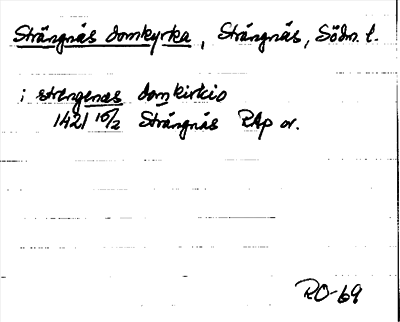 Strängnäs domkyrka, Strängnäs, Södm. l.
i strengenæs domkirkio
1421 10/2 Strängnäs RAp or.
RO-69